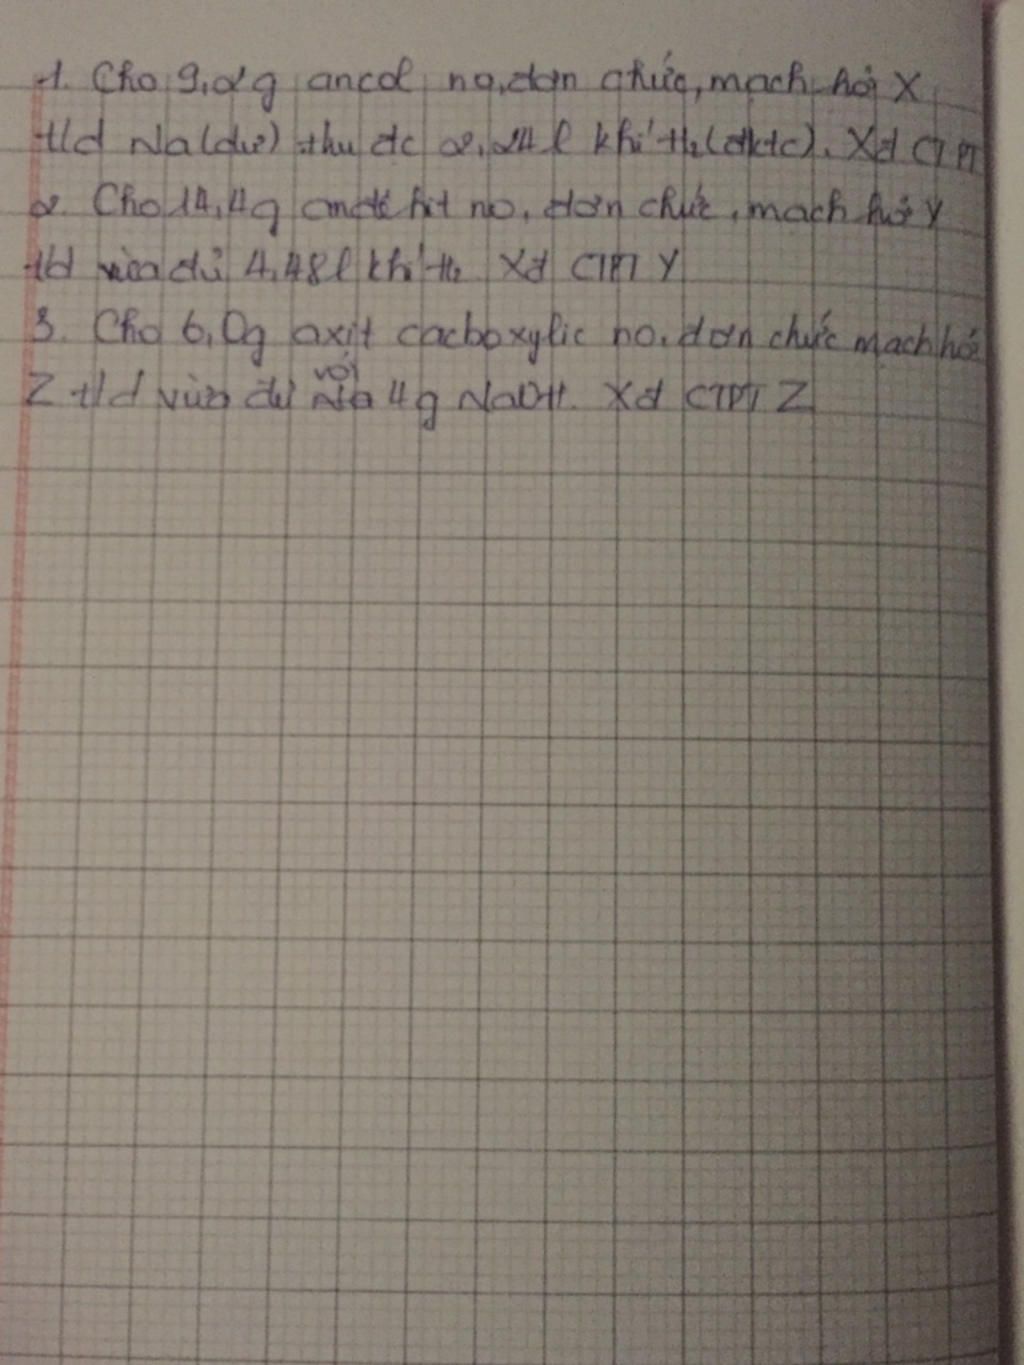 1. Cho 9,2g ancol no, đơn chức, mạch hở X
t/d Na (dư) thu đc 2,24 l khí H₂ (đktc). Xđ CTPT
2. Cho 14,4g anđehit no, đơn chức, mạch hở Y
t/d vừa đủ 4,48l khí H₂ Xđ CTPT Y
3. Cho 6,0g axit cacboxylic no, đơn chức mạch hở
Z t/d vừa đủ với 4g NaOH. Xđ CTPT Z